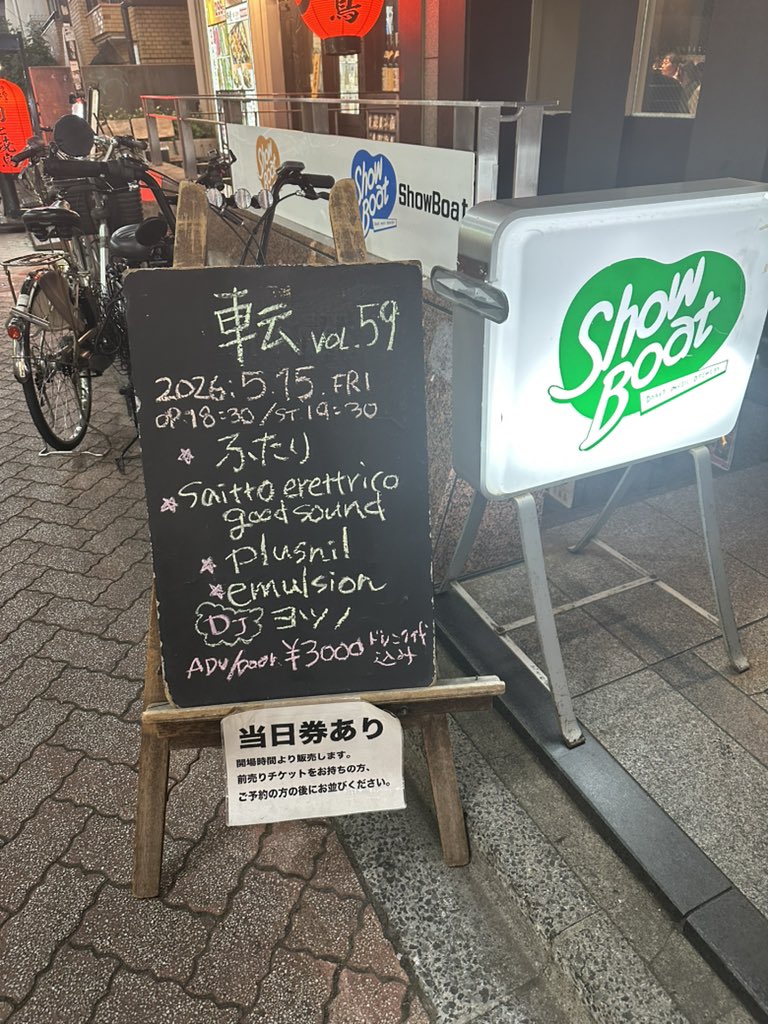 転 VOL.59
2026.5.15.FRI
OP.18:30/ST 19:30
☆ ふたり
☆ Saitto erettrico
good sound
☆ plusnil
☆ emulsion
DJ ヨツノ
ADV/DOOR ¥3000 ドリンク代
込み
当日券あり
開場時間より販売します。
前売りチケットをお持ちの方、
ご予約の方の後にお並びください。
Show
Boat
Show
Boat
ShowBoat
鳥